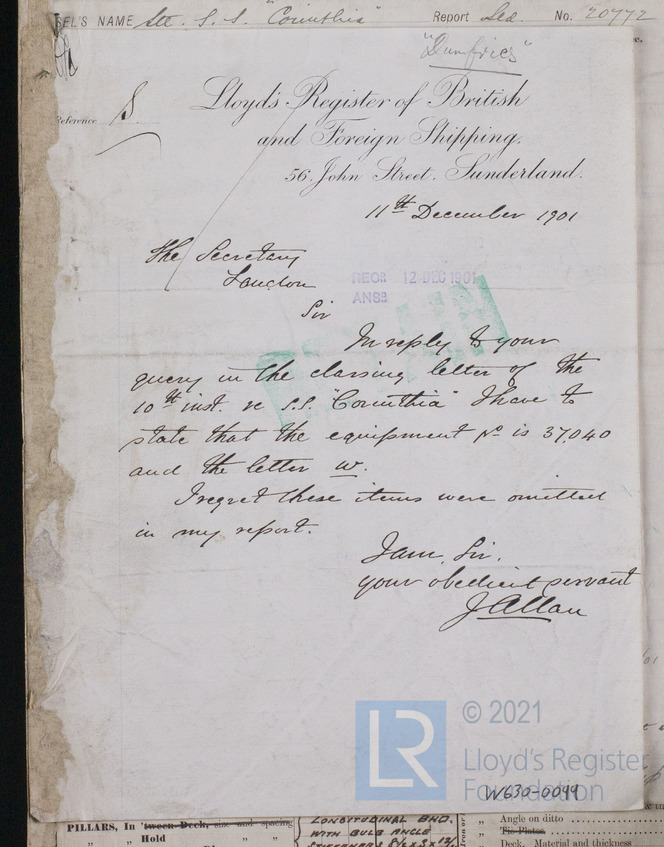 SEL'S NAME Str. S.S. "Corinthia" Report Sld. No. 20772
"Dumfries"
Reference S
Lloyd's Register of British
and Foreign Shipping.
56, John Street. Sunderland.
11th December 1901
The Secretary
London
RECD 12 DEC 1901
ANSD
Sir
In reply to your
query in the classing letter of the
10th inst. re S.S. "Corinthia" I have to
state that the equipment No is 37,040
and the letter w.
I regret these items were omitted
in my report.
I am, Sir.
your obedient servant
J Allan
LR © 2021
Lloyd's Register
Foundation
W630-0099
PILLARS, In 'tween Deck, size and spacing
" " Hold " "
LONGITUDINAL BHD.
WITH BULB ANGLE
Iron or
" Angle on ditto
" Tie Plates
" Deck. Material and thickness